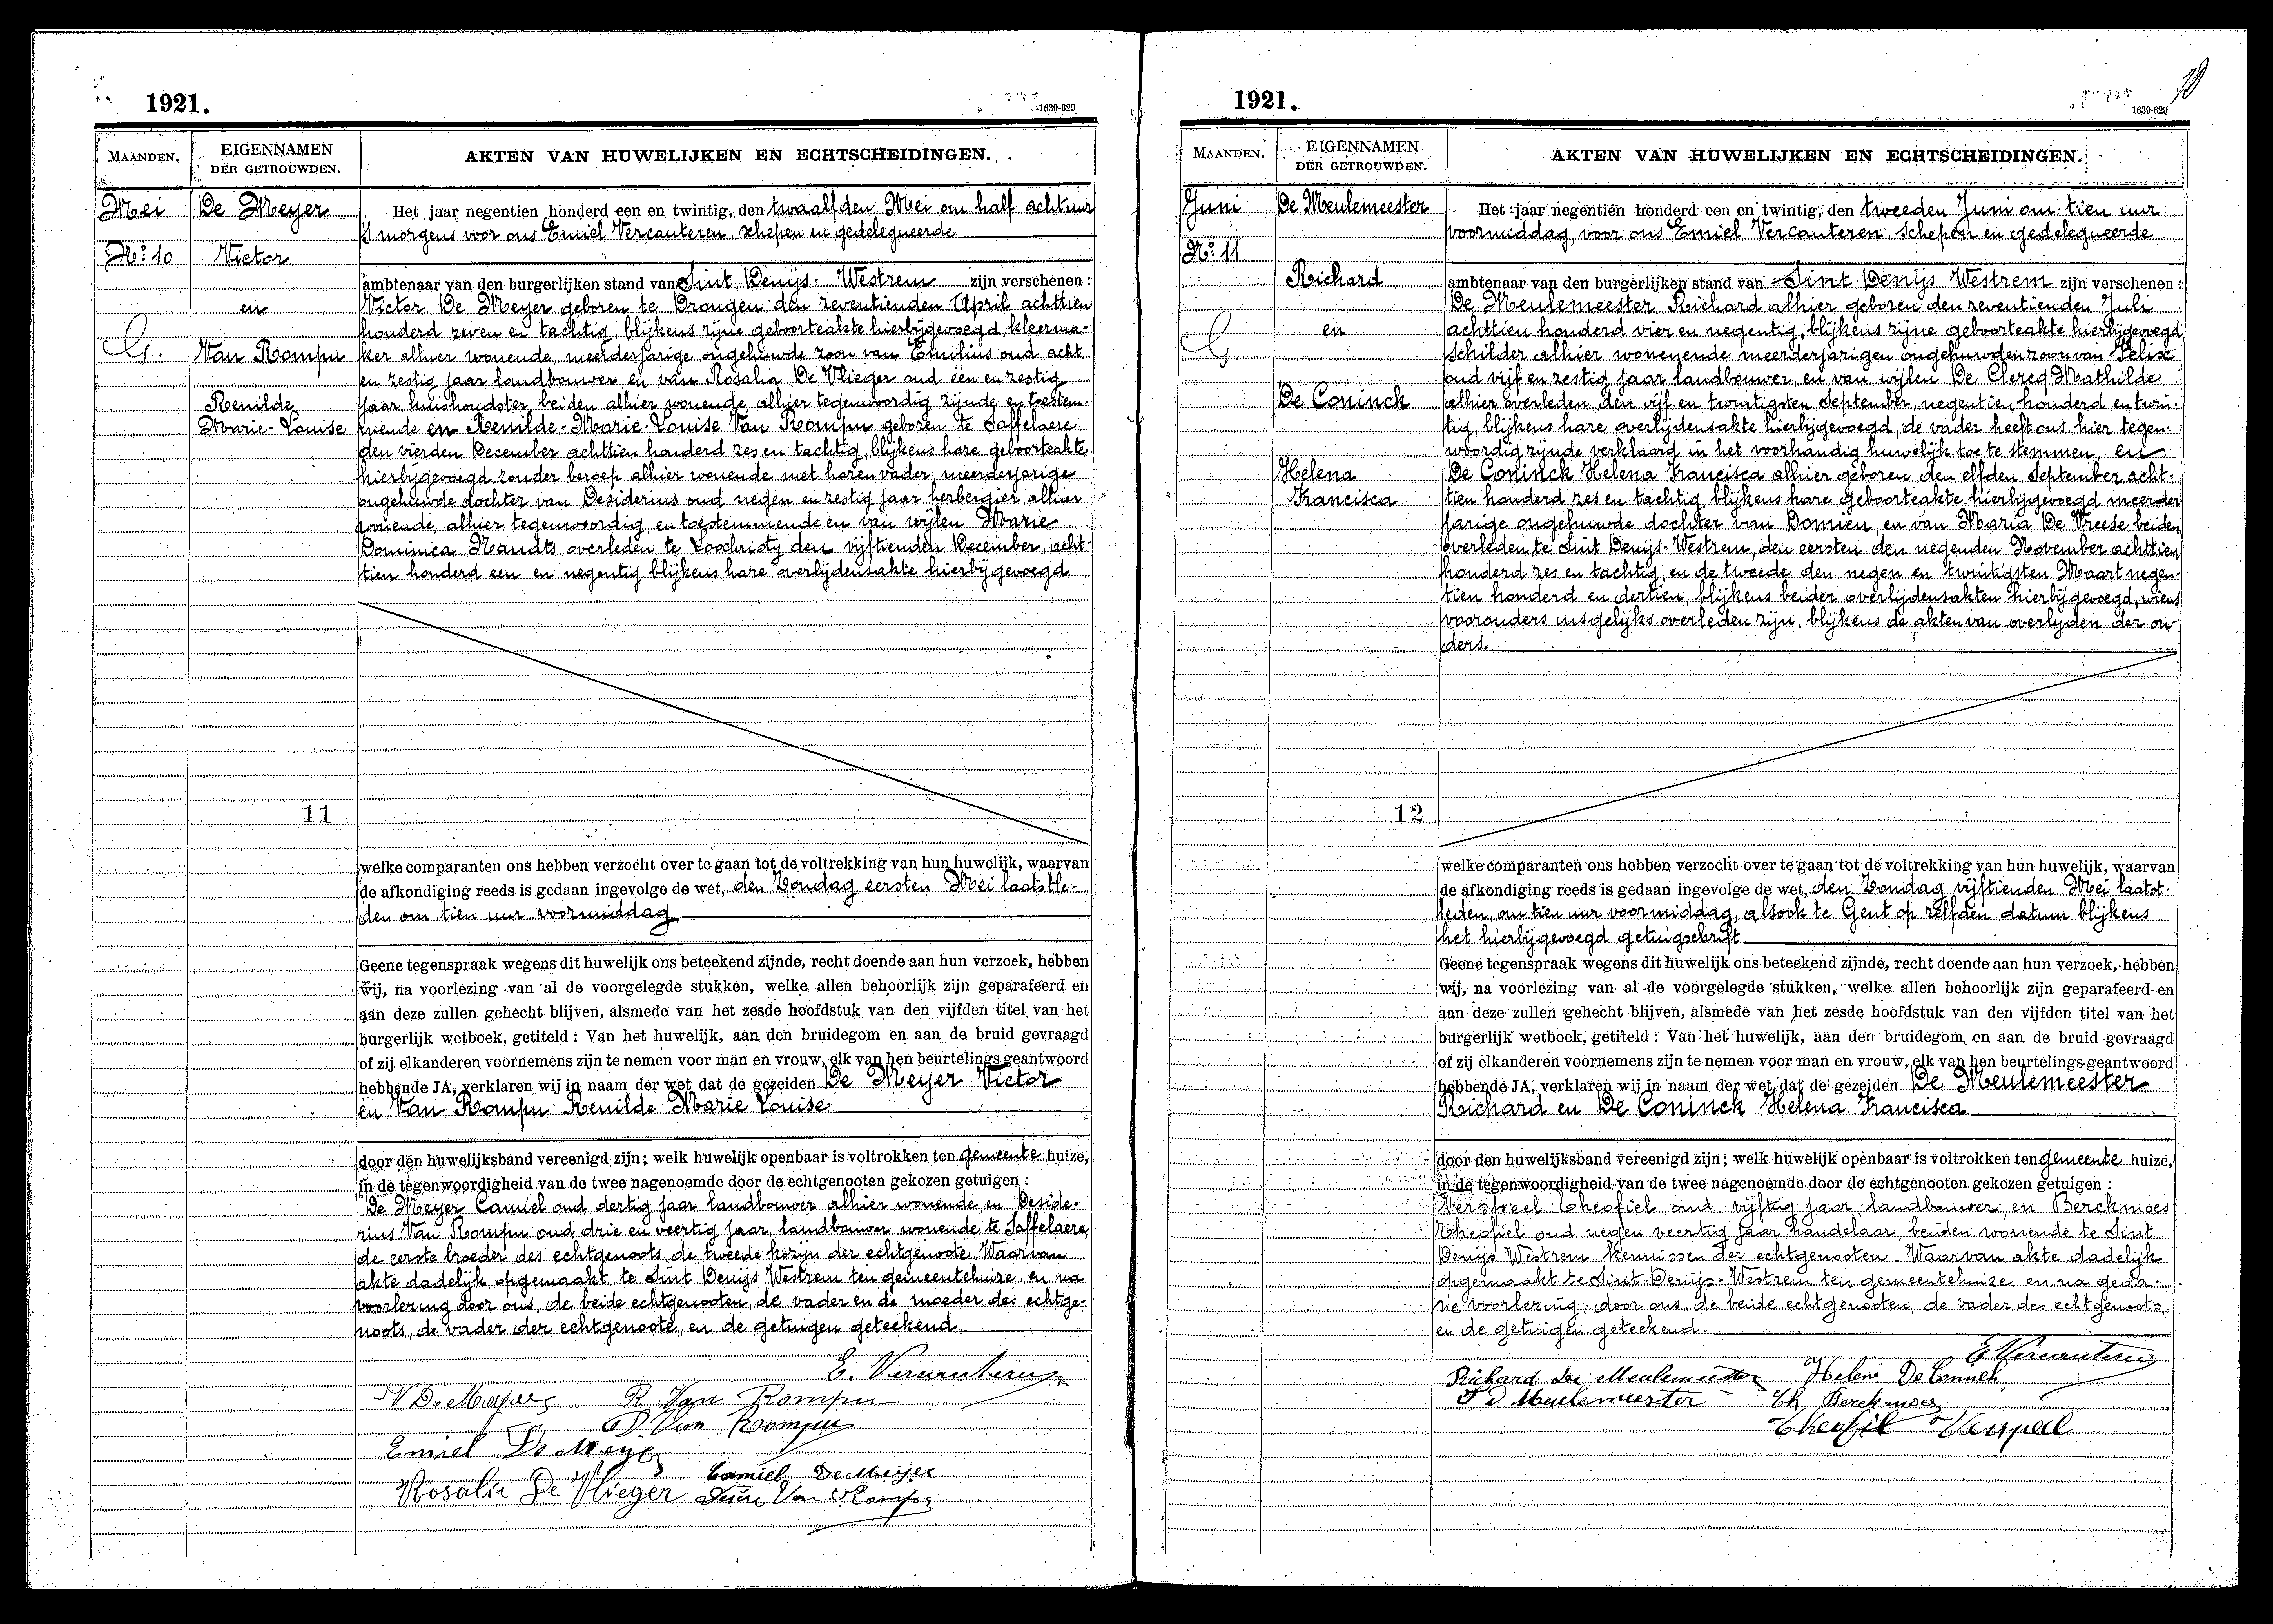 1921.
1639-629
MAANDEN.
EIGENNAMEN
DER GETROUWDEN.
AKTEN VAN HUWELIJKEN EN ECHTSCHEIDINGEN.
Mei
No: 10
G.
De Meyer
Victor
en
Van Rompu
Renilde
Marie-Louise
11
Het jaar negentien honderd een en twintig, den twaalfden Mei om half acht uur
's morgens voor ons Emiel Vercauteren, schepen en gedelegueerde
ambtenaar van den burgerlijken stand van Sint Denijs-Westrem zijn verschenen:
Victor De Meyer geboren te Drongen den zeventienden April achttien
honderd zeven en tachtig, blijkens zijne geboorteakte hierbijgevoegd, kleerma-
ker alhier wonende, meerderjarige ongehuwde zoon van Emilius oud acht
en zestig jaar landbouwer en van Rosalia De Vlieger oud één en zestig
jaar huishoudster beiden alhier wonende alhier tegenwoordig zijnde en toestem-
mende en Renilde-Marie-Louise Van Rompu geboren te Saffelaere
den vierden December achttien honderd zes en tachtig, blijkens hare geboorteakte
hierbijgevoegd zonder beroep alhier wonende met haren vader, meerderjarige
ongehuwde dochter van Desiderius oud negen en zestig jaar herbergier alhier
wonende, alhier tegenwoordig, en toestemmende en van wijlen Marie
Dominica Mandts overleden te Loochristy den vijftienden December, acht-
tien honderd een en negentig blijkens hare overlijdensakte hierbijgevoegd
welke comparanten ons hebben verzocht over te gaan tot de voltrekking van hun huwelijk, waarvan
de afkondiging reeds is gedaan ingevolge de wet, den Zondag eersten Mei laatstle-
den om tien uur voormiddag
Geene tegenspraak wegens dit huwelijk ons beteekend zijnde, recht doende aan hun verzoek, hebben
wij, na voorlezing van al de voorgelegde stukken, welke allen behoorlijk zijn geparafeerd en
aan deze zullen gehecht blijven, alsmede van het zesde hoofdstuk van den vijfden titel van het
burgerlijk wetboek, getiteld: Van het huwelijk, aan den bruidegom en aan de bruid gevraagd
of zij elkanderen voornemens zijn te nemen voor man en vrouw, elk van hen beurtelings geantwoord
hebbende JA, verklaren wij in naam der wet dat de gezeiden De Meyer Victor
en Van Rompu Renilde Marie Louise
door den huwelijksband vereenigd zijn; welk huwelijk openbaar is voltrokken ten gemeente huize,
in de tegenwoordigheid van de twee nagenoemde door de echtgenooten gekozen getuigen:
De Meyer Camiel oud dertig jaar landbouwer alhier wonende, en Deside-
rius Van Rompu oud drie en veertig jaar, landbouwer wonende te Saffelaere,
de eerste broeder des echtgenoots de tweede kozijn der echtgenoote. Waarvan
akte dadelijk opgemaakt te Sint Denijs Westrem ten gemeentehuize en na
voorlezing door ons, de beide echtgenooten, de vader en de moeder des echtge-
noots, de vader der echtgenoote, en de getuigen geteekend.
E. Vercauteren
V De Meyer R. Van Rompu
D. Van Rompu
Emiel De Meyer
Camiel De Meijer
Rosalie De Vlieger Van Rompu
1921.
1639-629
MAANDEN.
EIGENNAMEN
DER GETROUWDEN.
AKTEN VAN HUWELIJKEN EN ECHTSCHEIDINGEN.
Juni
No: 11
G.
De Meulemeester
Richard
en
De Coninck
Helena
Francisca
12
Het jaar negentien honderd een en twintig, den tweeden Juni om tien uur
voormiddag, voor ons Emiel Vercauteren, schepen en gedelegueerde
ambtenaar van den burgerlijken stand van Sint-Denijs Westrem zijn verschenen:
De Meulemeester Richard alhier geboren den zeventienden Juli
achttien honderd vier en negentig, blijkens zijne geboorteakte hierbijgevoegd,
schilder alhier wonenende meerderjarigen ongehuwden zoon van Felix
oud vijf en zestig jaar landbouwer, en van wijlen De Clercq Mathilde
alhier overleden den vijf en twintigsten September, negentien honderd en twin-
tig, blijkens hare overlijdensakte hierbijgevoegd, de vader heeft ons hier tegen-
woordig zijnde verklaard in het voorhandig huwelijk toe te stemmen, en
De Coninck Helena Francisca alhier geboren den elfden September acht-
tien honderd zes en tachtig, blijkens hare geboorteakte hierbijgevoegd meerder
jarige ongehuwde dochter van Domien, en van Maria De Vreese beiden
overleden te Sint Denijs-Westrem, den eersten den negenden November achttien
honderd zes en tachtig, en de tweede den negen en twintigsten Maart negen-
tien honderd en dertien, blijkens beider overlijdensakten hierbijgevoegd, wiens
voorouders insgelijks overleden zijn, blijkens de akten van overlijden der ou-
ders.
welke comparanten ons hebben verzocht over te gaan tot de voltrekking van hun huwelijk, waarvan
de afkondiging reeds is gedaan ingevolge de wet, den Zondag vijftienden Mei laatst-
leden, om tien uur voormiddag, alsook te Gent op zelfden datum blijkens
het hierbijgevoegd getuigschrift
Geene tegenspraak wegens dit huwelijk ons beteekend zijnde, recht doende aan hun verzoek, hebben
wij, na voorlezing van al de voorgelegde stukken, welke allen behoorlijk zijn geparafeerd en
aan deze zullen gehecht blijven, alsmede van het zesde hoofdstuk van den vijfden titel van het
burgerlijk wetboek, getiteld: Van het huwelijk, aan den bruidegom en aan de bruid gevraagd
of zij elkanderen voornemens zijn te nemen voor man en vrouw, elk van hen beurtelings geantwoord
hebbende JA, verklaren wij in naam der wet dat de gezeiden De Meulemeester
Richard en De Coninck Helena Francisca
door den huwelijksband vereenigd zijn; welk huwelijk openbaar is voltrokken ten gemeente huize,
in de tegenwoordigheid van de twee nagenoemde door de echtgenooten gekozen getuigen:
Verspeel Theofiel oud vijftig jaar landbouwer, en Berckmoes
Theofiel oud negen veertig jaar handelaar, beiden wonende te Sint
Denijs Westrem kennissen der echtgenooten. Waarvan akte dadelijk
opgemaakt te Sint-Denijs-Westrem ten gemeentehuize en na geda-
ne voorlezing, door ons, de beide echtgenooten, de vader des echtgenoots,
en de getuigen geteekend.
E Vercauteren
Richard De Meulemeester Helene De Coninck
F D Meulemeester Th. Berckmoes
Theofiel Verspeel